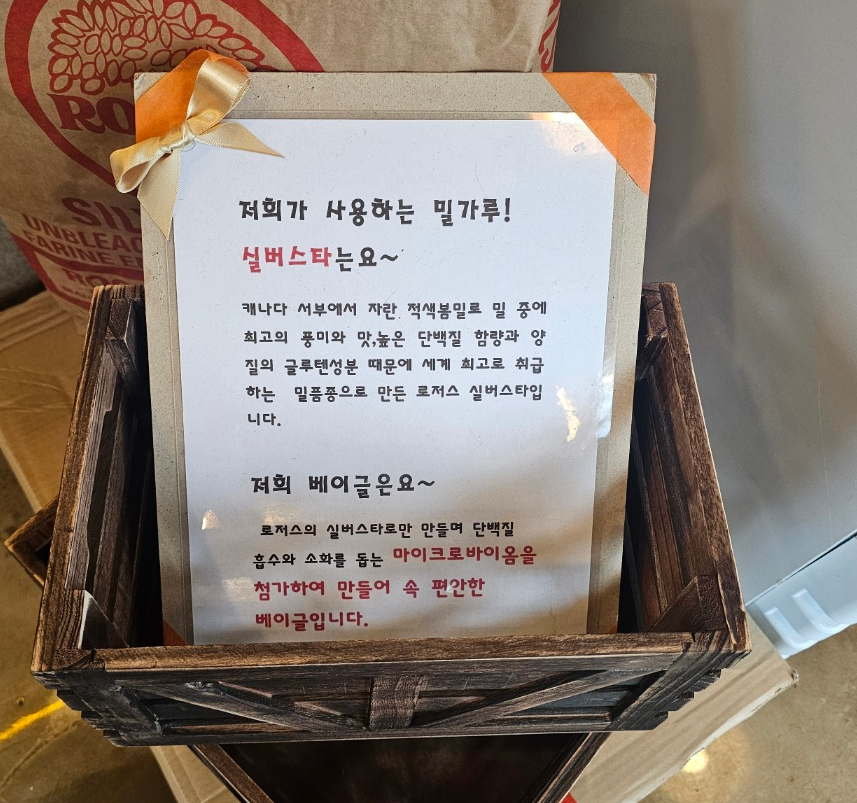 RO
SIL
UNBLEAC
FARINE E
RO
저희가 사용하는 밀가루!
실버스타는요~
캐나다 서부에서 자란 적색봄밀로 밀 중에
최고의 풍미와 맛,높은 단백질 함량과 양
질의 글루텐성분 때문에 세계 최고로 취급
하는 밀품종으로 만든 로저스 실버스타입
니다.
저희 베이글은요~
로저스의 실버스타로만 만들며 단백질
흡수와 소화를 돕는 마이크로바이옴을
첨가하여 만들어 속 편안한
베이글입니다.